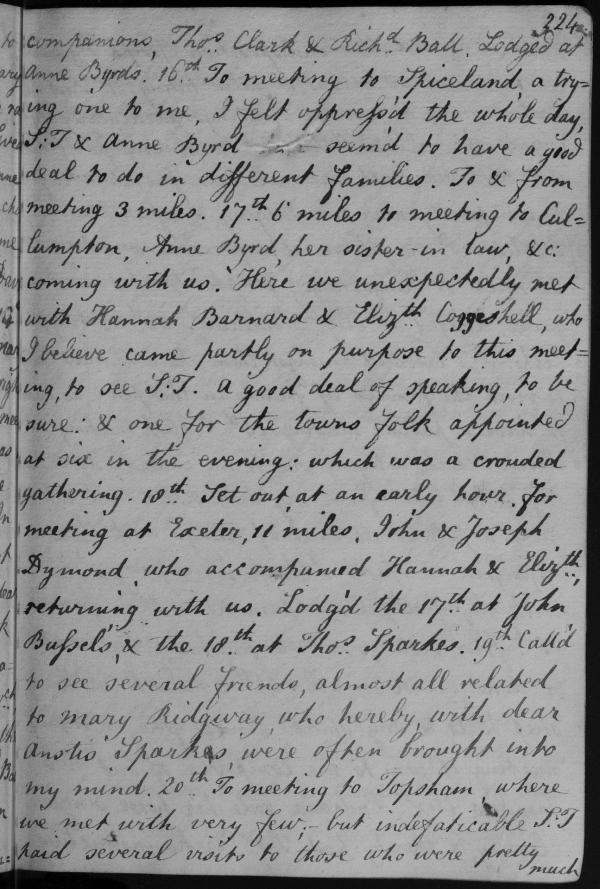 224
companions, Thos. Clark & Richd. Ball. Lodged at
Anne Byrds. 16th To meeting to Spiceland, a try=
ing one to me, I felt oppress'd the whole day,
S:T & Anne Byrd seem'd to have a good
deal to do in different families. To & from
meeting 3 miles. 17th 6 miles to meeting to Cul=
lumpton, Anne Byrd, her sister-in law, &c:
coming with us. Here we unexpectedly met
with Hannah Barnard & Elizth Coggeshell, who
I believe came partly on purpose to this meet=
ing, to see S:T. a good deal of speaking, to be
sure: & one for the towns folk appointed
at six in the evening: which was a crouded
gathering. 18th Set out, at an early hour, for
meeting at Exeter, 11 miles, John & Joseph
Dymond, who accompanied Hannah & Elizth,
returning with us. Lodg'd the 17th at John
Bussel's, & the 18th at Thos. Sparkes. 19th Call'd
to see several friends, almost all related
to Mary Ridgway, who hereby, with dear
Anstis Sparkes, were often brought into
my mind. 20th To meeting to Topsham, where
we met with very few;- but indefaticable S:T
paid several visits to those who were pretty
much